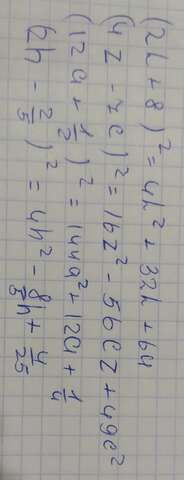 (2h + 8)² = 4h² + 32h + 64
(4z - 7c)² = 16z² - 56cz + 49c²
(12a + 1/2)² = 144a² + 12a + 1/4
2h - 2/5)² = 4h² - 8/5h + 4/25